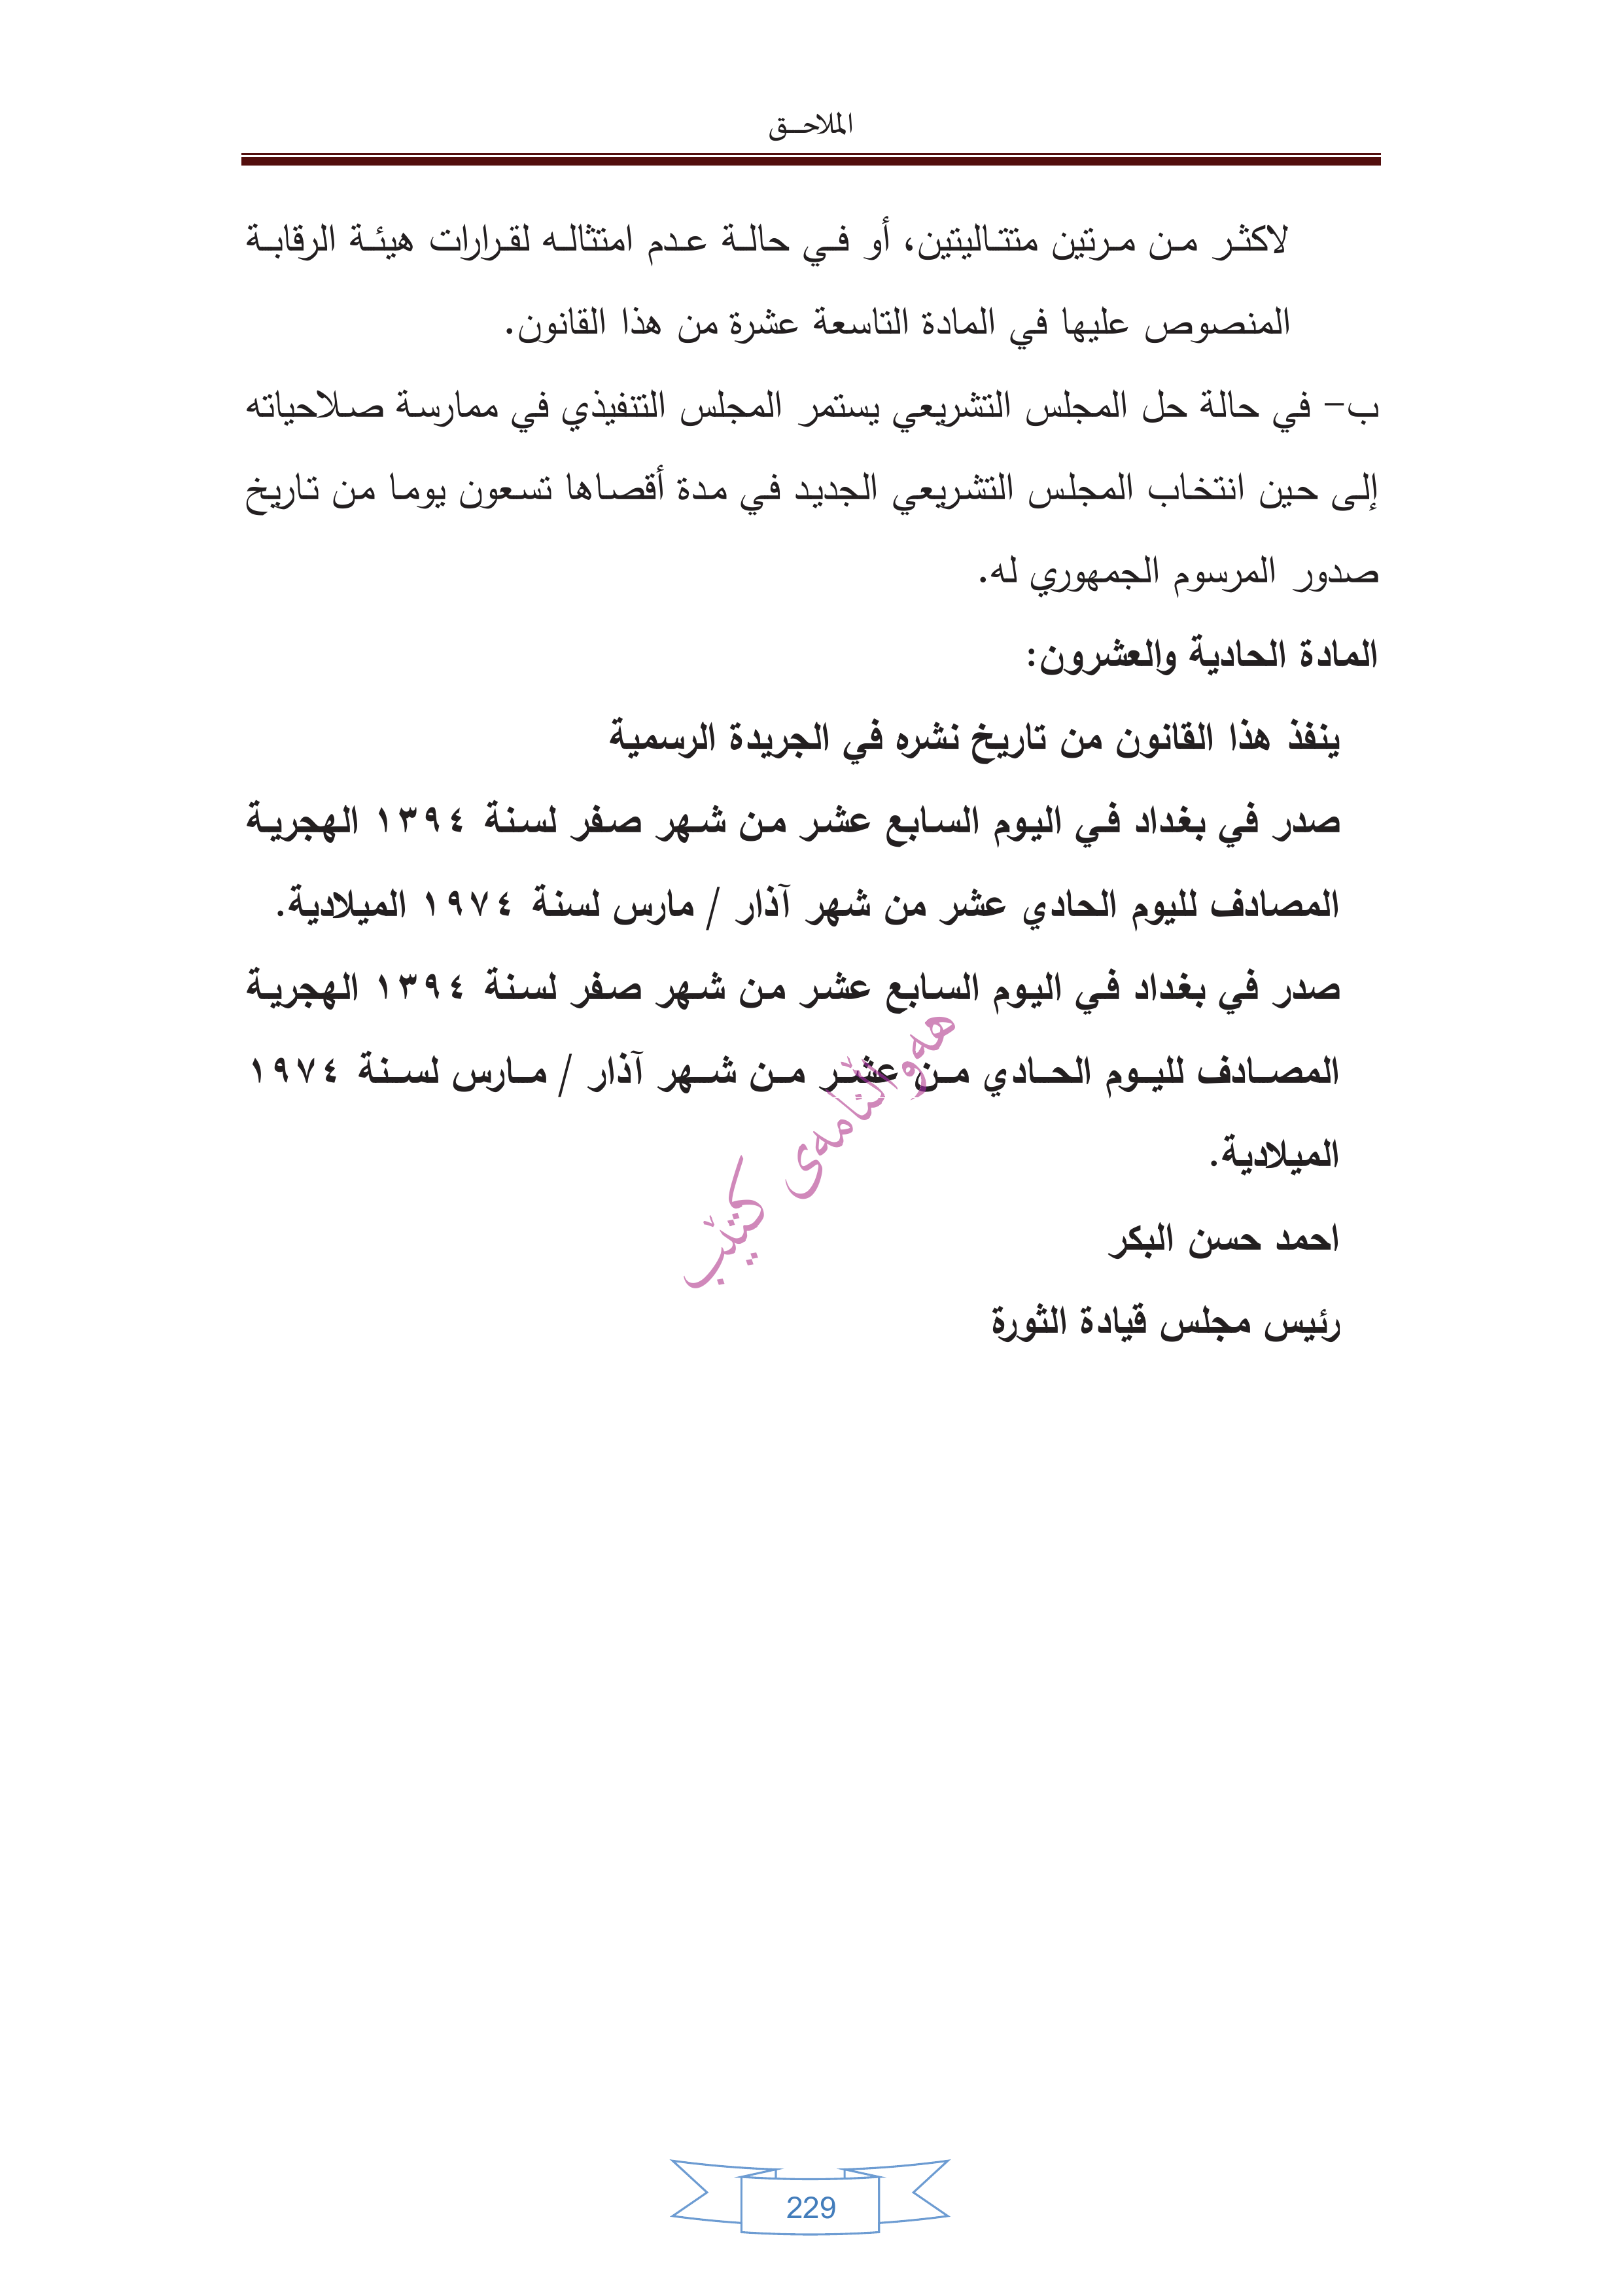 الملاحـــق
لاكثـر مـن مـرتين متتـاليتين، أو فـي حالـة عـدم امتثالـه لقـرارات هيئـة الرقابـة
المنصوص عليها في المادة التاسعة عشرة من هذا القانون.
ب– في حالة حل المجلس التشريعي يستمر المجلس التنفيذي في ممارسة صلاحياته
إلى حين انتخاب المجلس التشريعي الجديد في مدة أقصاها تسعون يوما من تاريخ
صدور المرسوم الجمهوري له.
المادة الحادية والعشرون:
ينفذ هذا القانون من تاريخ نشره في الجريدة الرسمية
صدر في بغداد في اليوم السابع عشر من شهر صفر لسنة ١٣٩٤ الهجرية
المصادف لليوم الحادي عشر من شهر آذار / مارس لسنة ١٩٧٤ الميلادية.
صدر في بغداد في اليوم السابع عشر من شهر صفر لسنة ١٣٩٤ الهجرية
المصــادف لليــوم الحــادي مــن عشــر مــن شــهر آذار / مــارس لســنة ١٩٧٤
الميلادية.
احمد حسن البكر
رئيس مجلس قيادة الثورة
هەواڵنامەی کتێب
229